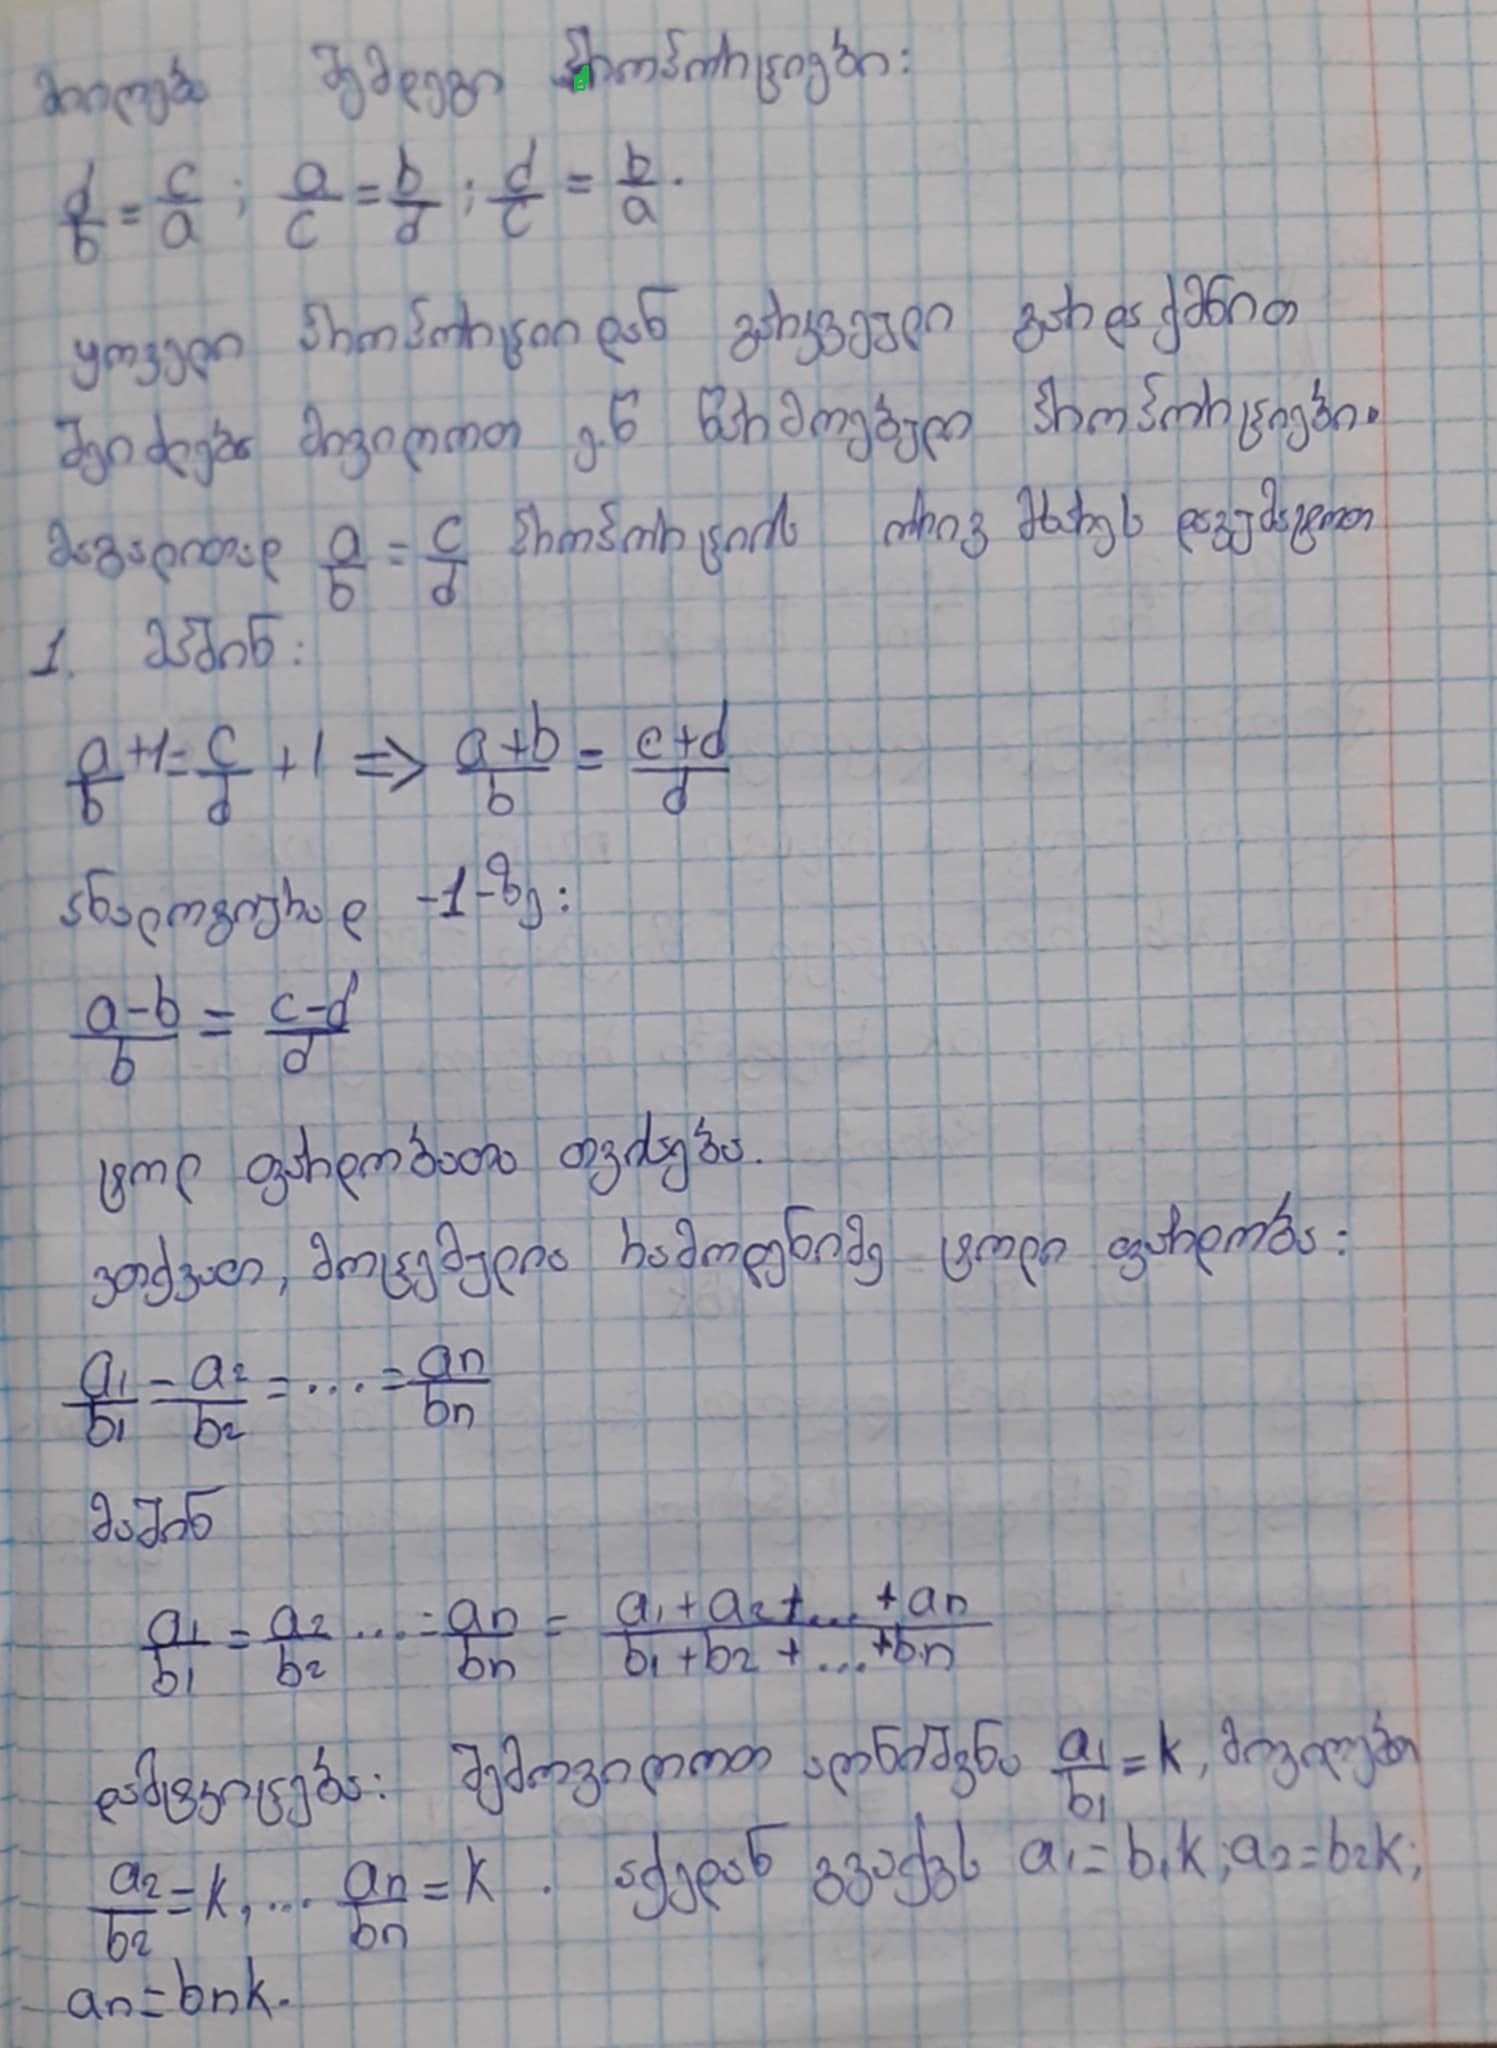 მიიღება შემდეგი პროპორციები:
d/b = c/a ; a/c = b/d ; d/c = b/a.
ყოველი პროპორციიდან გარკვეული გარდაქმნით
შეიძლება მივიღოთ ე.წ წარმოებული პროპორციები.
მაგალითად a/b = c/d პროპორციის ორივ მხარეს დავუმატოთ
1. მაშინ:
a/b +1 = c/d + 1 ⇒ a+b/b = c+d/d
ანალოგიურად -1-ზე:
a-b/b = c-d/d
ტოლ ფარდობათა თვისება.
ვთქვათ, მოცემულია რამოდენიმე ტოლი ფარდობა:
a1/b1 = a2/b2 = ... = an/bn
მაშინ
a1/b1 = a2/b2 ... = an/bn = a1+a2+...+an/b1+b2+...+bn
დამტკიცება: შემოვიღოთ აღნიშვნა a1/b1 = k, მივიღებთ
a2/b2 = k, ... an/bn = k . აქედან გვაქვს a1=b1k; a2=b2k;
an=bnk.